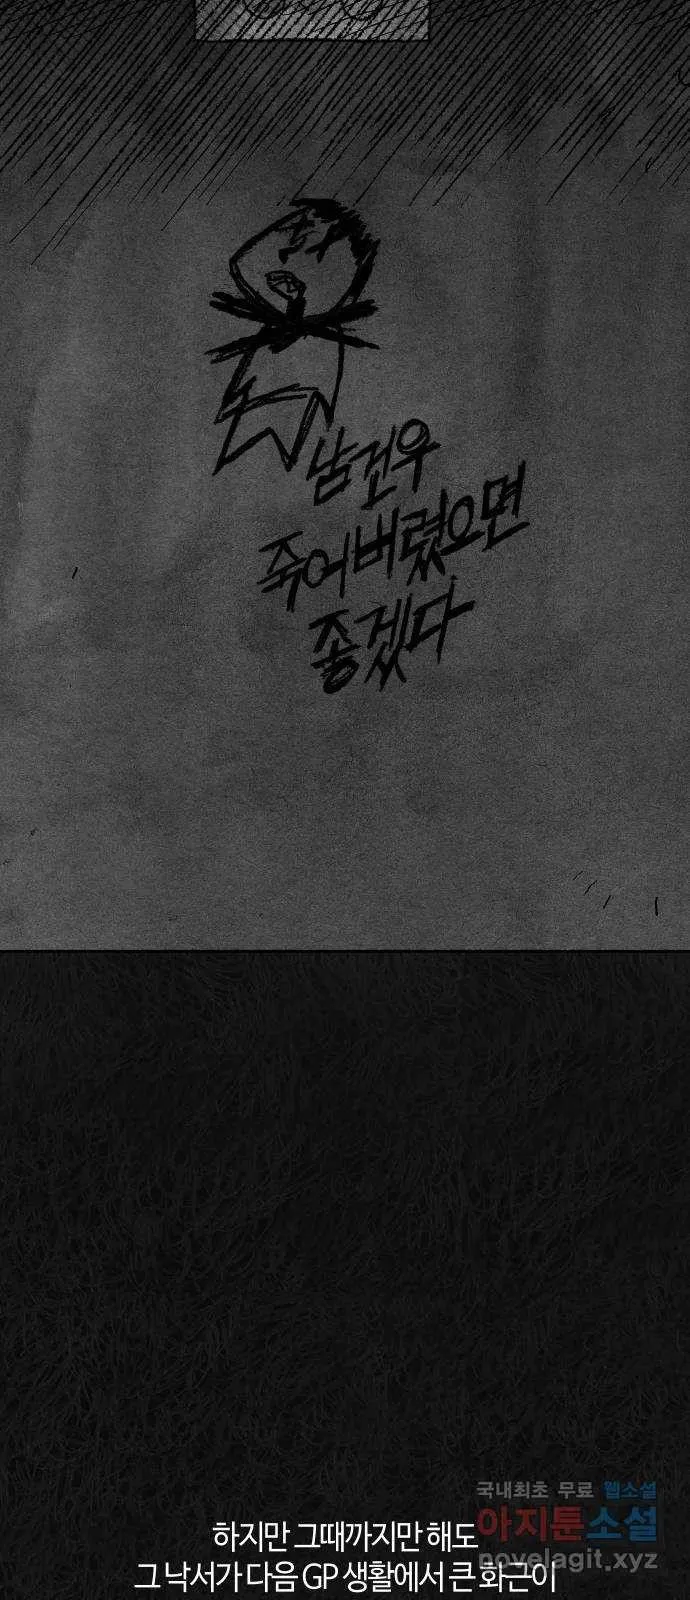 남건우
죽어버렸으면
좋겠다
국내최초 무료 웹소설
아지툰소설
novelagit.xyz
하지만 그때까지만 해도
그 낙서가 다음 GP 생활에서 큰 화근이